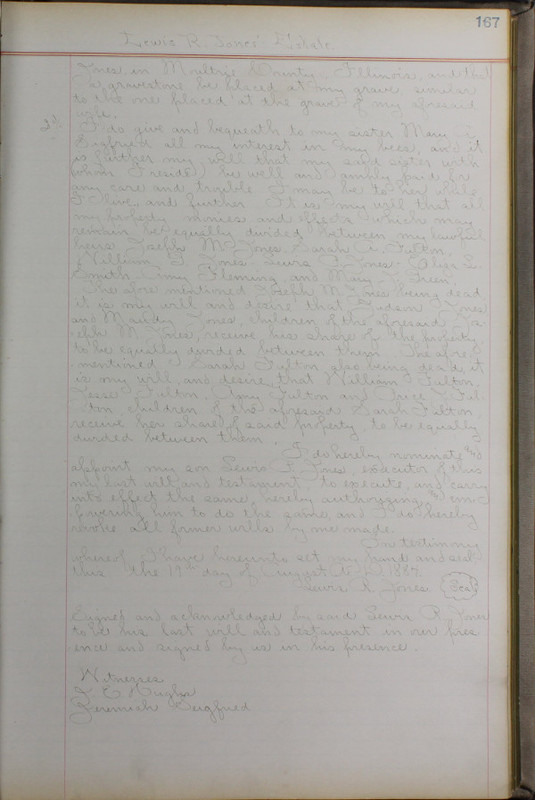 167
Lewis R. Jones' Estate.
Jones in Moultrie County, Illinois, and that
a gravestone be placed at my grave similar
to the one placed at the grave of my aforesaid
wife.
2d I do give and bequeath to my sister Mary
Siegfried all my interest in my bees, and it
is further my will that my said sister with
whom I reside be well and amply paid for
any care and trouble I may be to her while
I live, and further It is my will that all
my property monies and effects which may
remain be equally divided between my lawful
heirs Joseph M. Jones, Sarah A. Fulton,
William T. Jones, Lewis F. Jones, Eliza L.
Smith, Amy Fleming, and Mary Green.
The afore mentioned Joseph M. Jones being dead,
it is my will and desire that Judson Jones
and Maudy Jones, children of the aforesaid Jo-
seph M. Jones, receive his share of the property,
to be equally divided between them. The afore
mentioned Sarah Fulton also being dead, it
is my will and desire that William Fulton,
Jesse Fulton, Amy Fulton and Ful-
ton children of the aforesaid Sarah Fulton
receive her share of said property, to be equally
divided between them.
I do hereby nominate and
appoint my son Lewis F. Jones executor of this
my last will and testament to execute, and carry
into effect the same, hereby authorizing and em-
powering him to do the same, and I do hereby
revoke all former wills by me made.
In testimony
whereof, I have hereunto set my hand and seal
this the 19th day of August A.D.
Lewis R. Jones Seal
Signed and acknowledged by said Lewis R. Jones
to be his last will and testament in our pres
ence and signed by us in his presence.
Witnesses
Jeremiah Siegfried